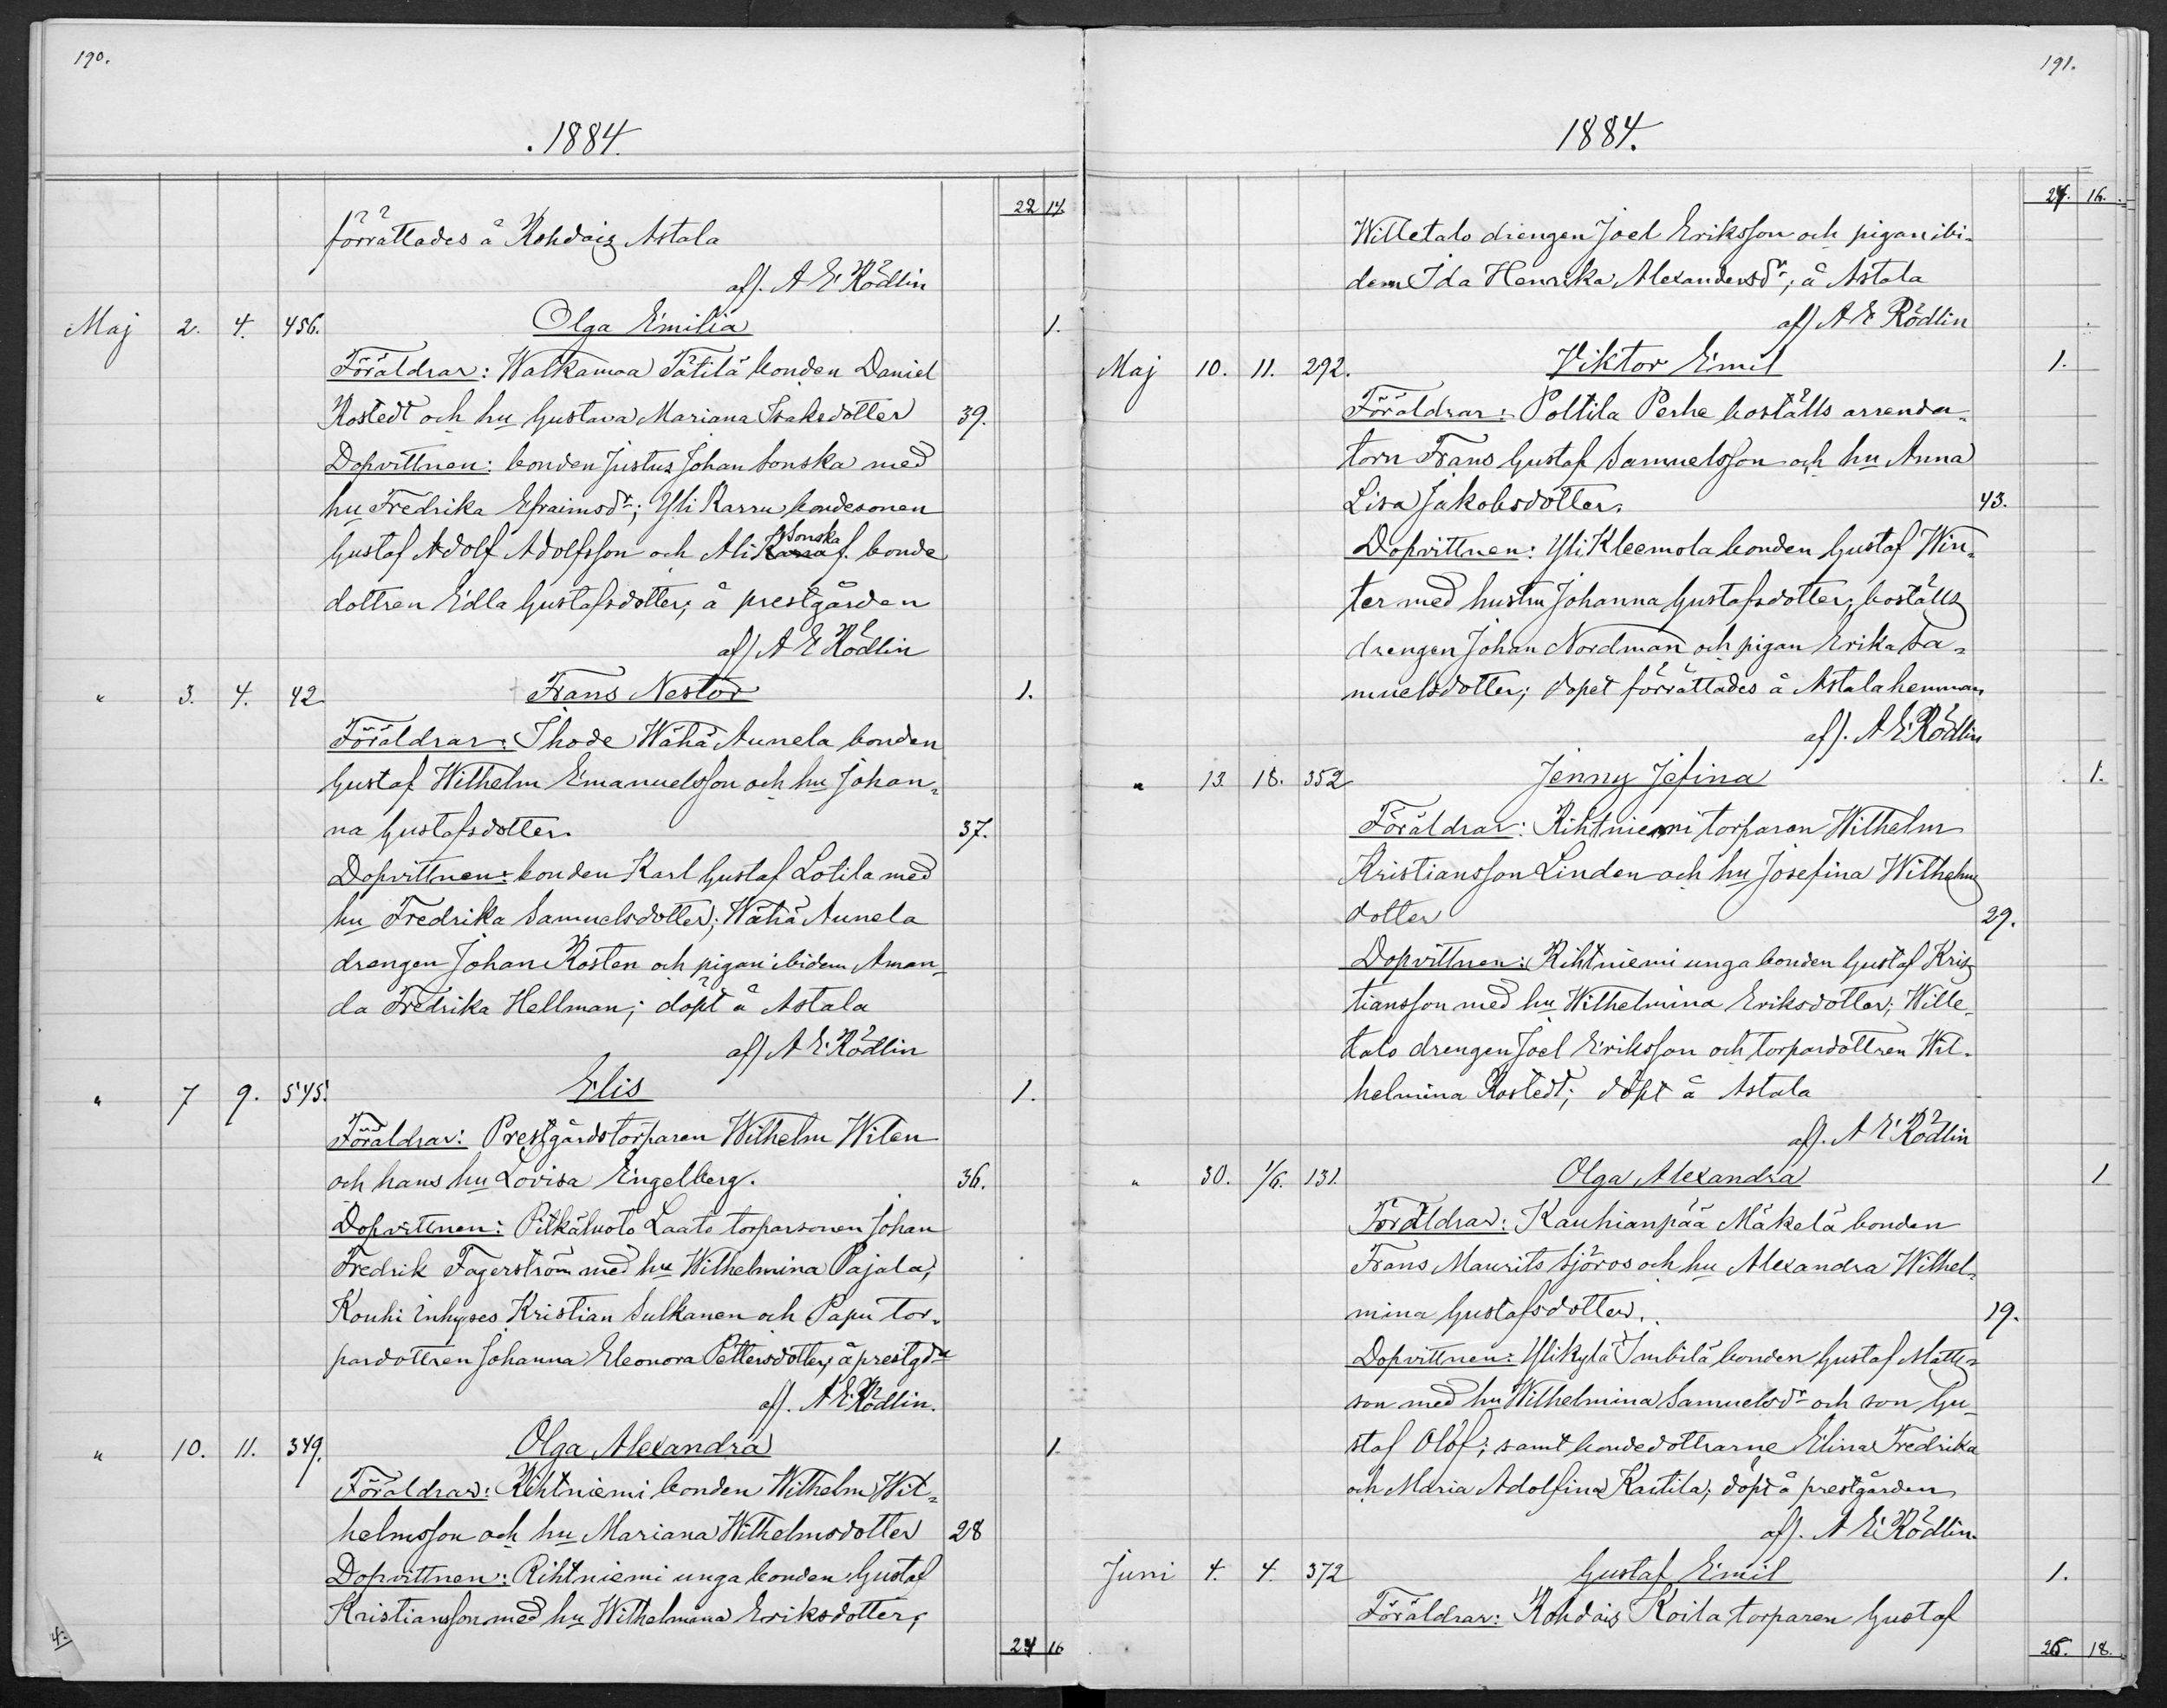 190.
.1884.
22 14
förrättades å Kohdaiz Astala
af/. A E Rödlin
Maj 2. 4. 456. Olga Emilia 1.
Föräldrar: Walkamaa Tätilä bonden Daniel
Rostedt och hu Gustava Mariana Isaksdotter 39.
Dopvittnen: bonden Justus Johan Sonska med
hu Fredrika Efraimsdr; Yli Karru bondesonen
Gustaf Adolf Adolfsson och Ali Sonska f. bonde
dottren Edla Gustafsdotter; å prestgården
af/ A E Rödlin
" 3. 4. 42 Frans Nestor 1.
Föräldrar: Ihode Wähä Aunela bonden
Gustaf Wilhelm Emanuelsson och hu Johan¬
na Gustafsdotter. 37.
Dopvittnen: bonden Karl Gustaf Lotila med
hu Fredrika Samuelsdotter; Wähä Aunela
drengen Johan Rosten och pigan ibidem Aman¬
da Fredrika Hellman; döpt å Astala
af/ A E Rödlin
" 7 9. 545. Elis 1.
Föräldrar: Prestgårdstorparen Wilhelm Wilen
och hans hu Lovisa Engelberg. 36.
Dopvittnen: Pitkäluoto Laato torparsonen Johan
Fredrik Fagerström med hu Wilhelmina Pajala;
Kouhi inhyses Kristian Sulkanen och Papu tor¬
pardottren Johanna Eleonora Pettersdotter; å prestgdn
af/. A E Rödlin.
" 10. 11. 349. Olga Alexandra 1.
Föräldrar: Rihtniemi bonden Wilhelm Wil¬
helmsson och hu Mariana Wilhelmsdotter 28
Dopvittnen: Rihtniemi unga bonden Gustaf
Kristiansson med hu Wilhelmina Eriksdotter;
24 16
4.
191.
1884.
24. 16.
Willetalo drengen Joel Eriksson och pigan ibi¬
dem Ida Henrika Alexandersdr; å Astala
af/ A E Rödlin
Maj 10. 11. 292. Viktor Emil 1.
Föräldrar: Poltila Perhe boställs arrenda¬
torn Frans Gustaf Samuelsson och hu Anna
Lisa Jakobsdotter. 43.
Dopvittnen: Yli Kleemola bonden Gustaf Win¬
ter med hustru Johanna Gustafsdotter; boställs
drengen Johan Nordman och pigan Erika Sa¬
muelsdotter; dopet förrättades å Astala hemman
af/. A E Rödlin
" 13. 18. 352 Jenny Jefina 1.
Föräldrar: Rihtniemi torparen Wilhelm
Kristiansson Linden och hu Josefina Wilhelms
dotter 29.
Dopvittnen: Rihtniemi unga bonden Gustaf Kris
tiansson med hu Wilhelmina Eriksdotter; Wille¬
talo drengen Joel Eriksson och torpardottren Wil¬
helmina Rostedt; döpt å Astala
af/. A E Rödlin
" 30. 1/6. 131. Olga Alexandra 1
Föräldrar: Kauhianpää Mäkelä bonden
Frans Maurits Sjöros och hu Alexandra Wilhel¬
mina Gustafsdotter. 19.
Dopvittnen: Ylikylä Imbilä bonden Gustaf Matts¬
son med hu Wilhelmina Samuelsdr och son Gu¬
staf Olof; samt bondedottrarne Elina Fredrika
och Maria Adolfina Kaitila; döpt å prestgården
af/. A E Rödlin.
Juni 4. 4. 372 Gustaf Emil 1.
Föräldrar: Kohdaiz Koila torparen Gustaf
26. 18.